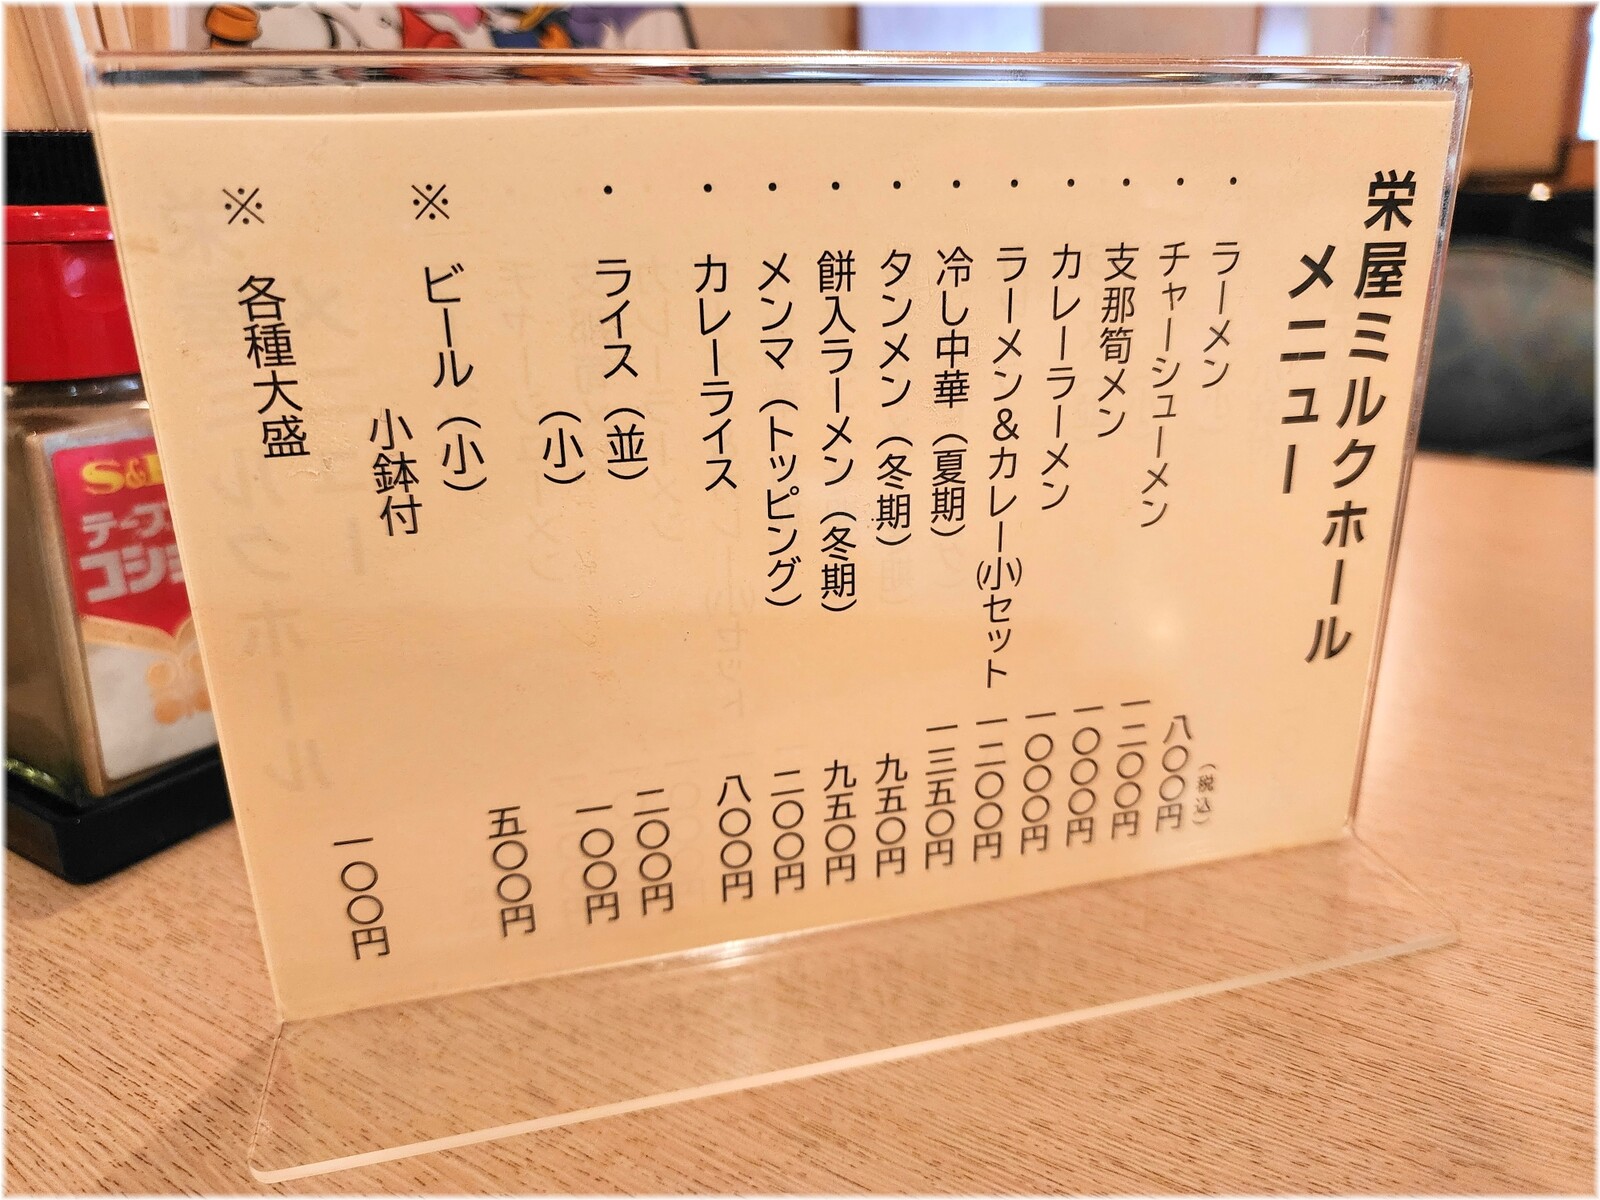 栄屋ミルクホール
メニュー
(税込)
・ラーメン 八〇〇円
・チャーシューメン 一二〇〇円
・支那筍メン 一〇〇〇円
・カレーラーメン 一〇〇〇円
・ラーメン&カレー(小)セット 一二〇〇円
・冷し中華(夏期) 一三五〇円
・タンメン(冬期) 九五〇円
・餅入ラーメン(冬期) 九五〇円
・メンマ(トッピング) 二〇〇円
・カレーライス 八〇〇円
・ライス(並) 二〇〇円
(小) 一〇〇円
※ビール(小) 五〇〇円
小鉢付
※各種大盛 一〇〇円
S&
テーブ
コシ